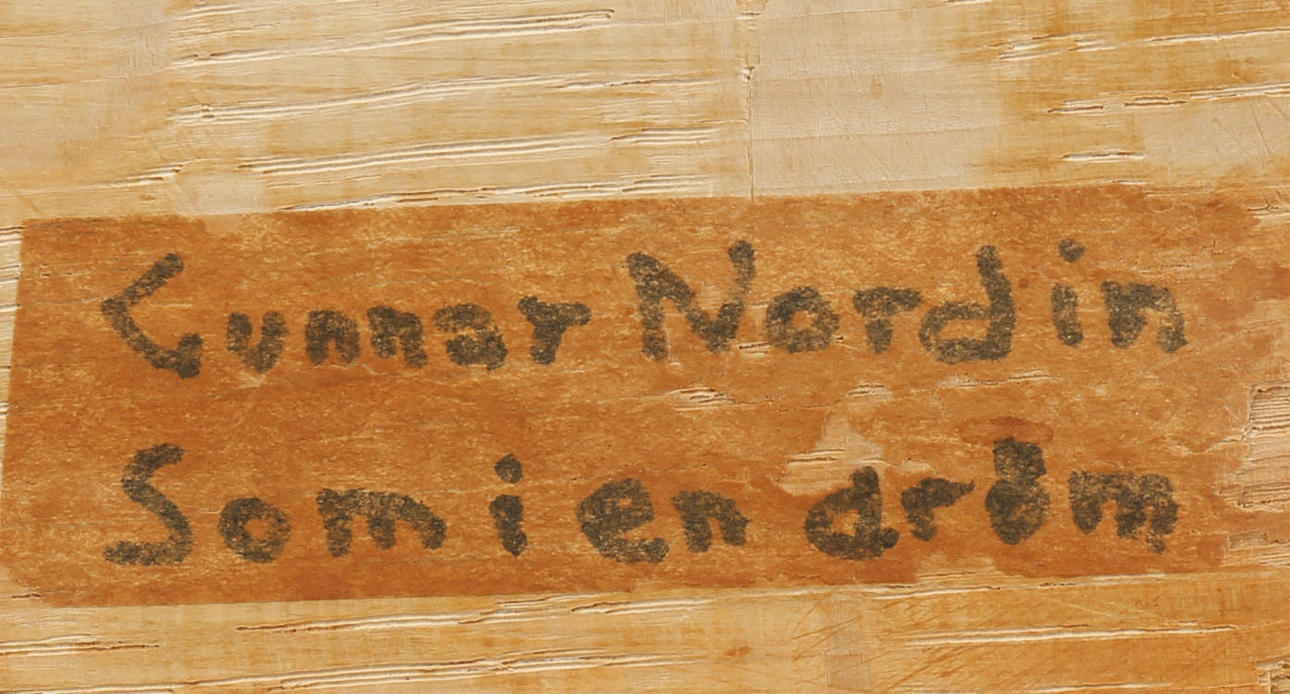 Gunnar Nordin
Som i en dröm